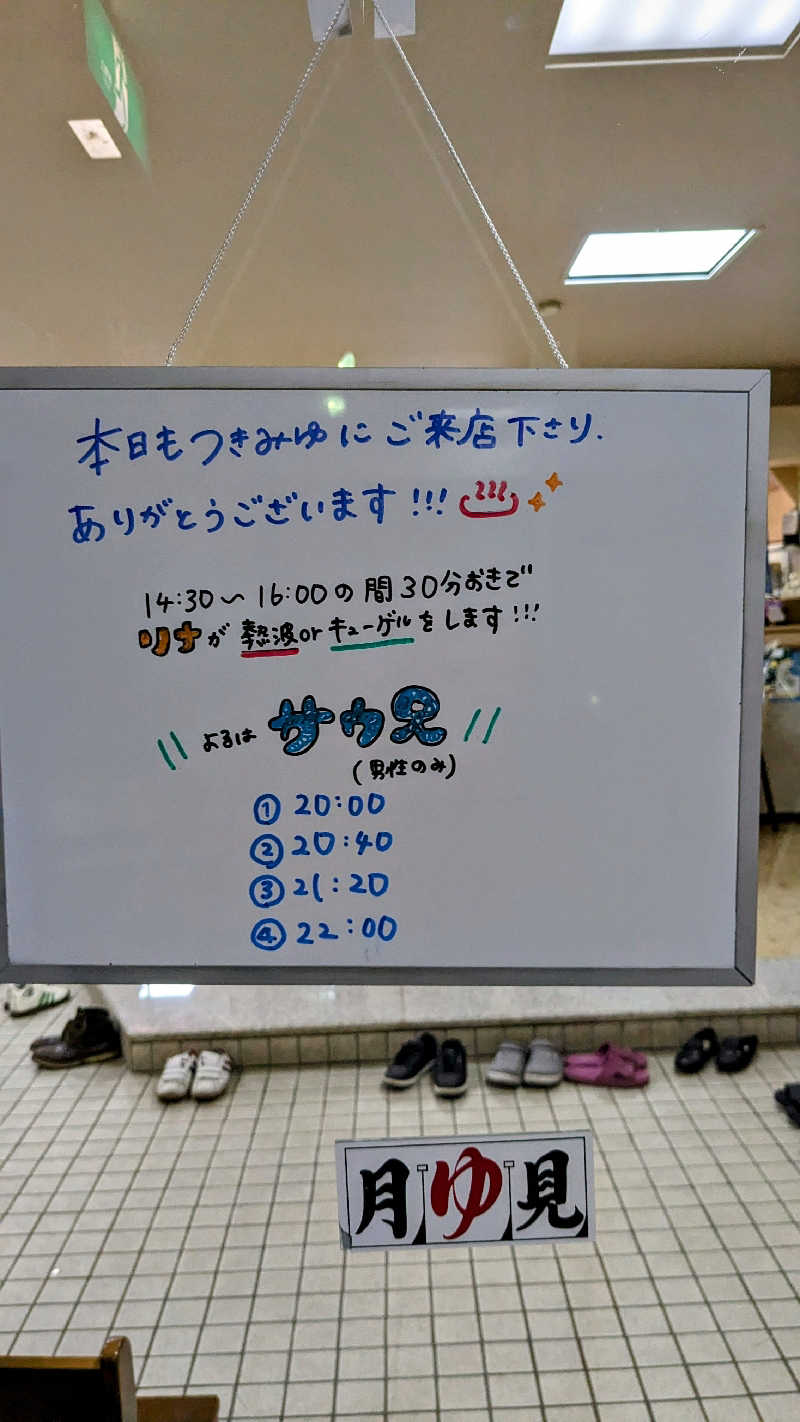 本日もつきみゆにご来店下さり、
ありがとうございます!!!
14:30〜16:00の間30分おきで
リナが熱波orキューゲルをします!!!
\\ よるは サウ兄 //
(男性のみ)
① 20:00
② 20:40
③ 21:20
④ 22:00
月ゆ見